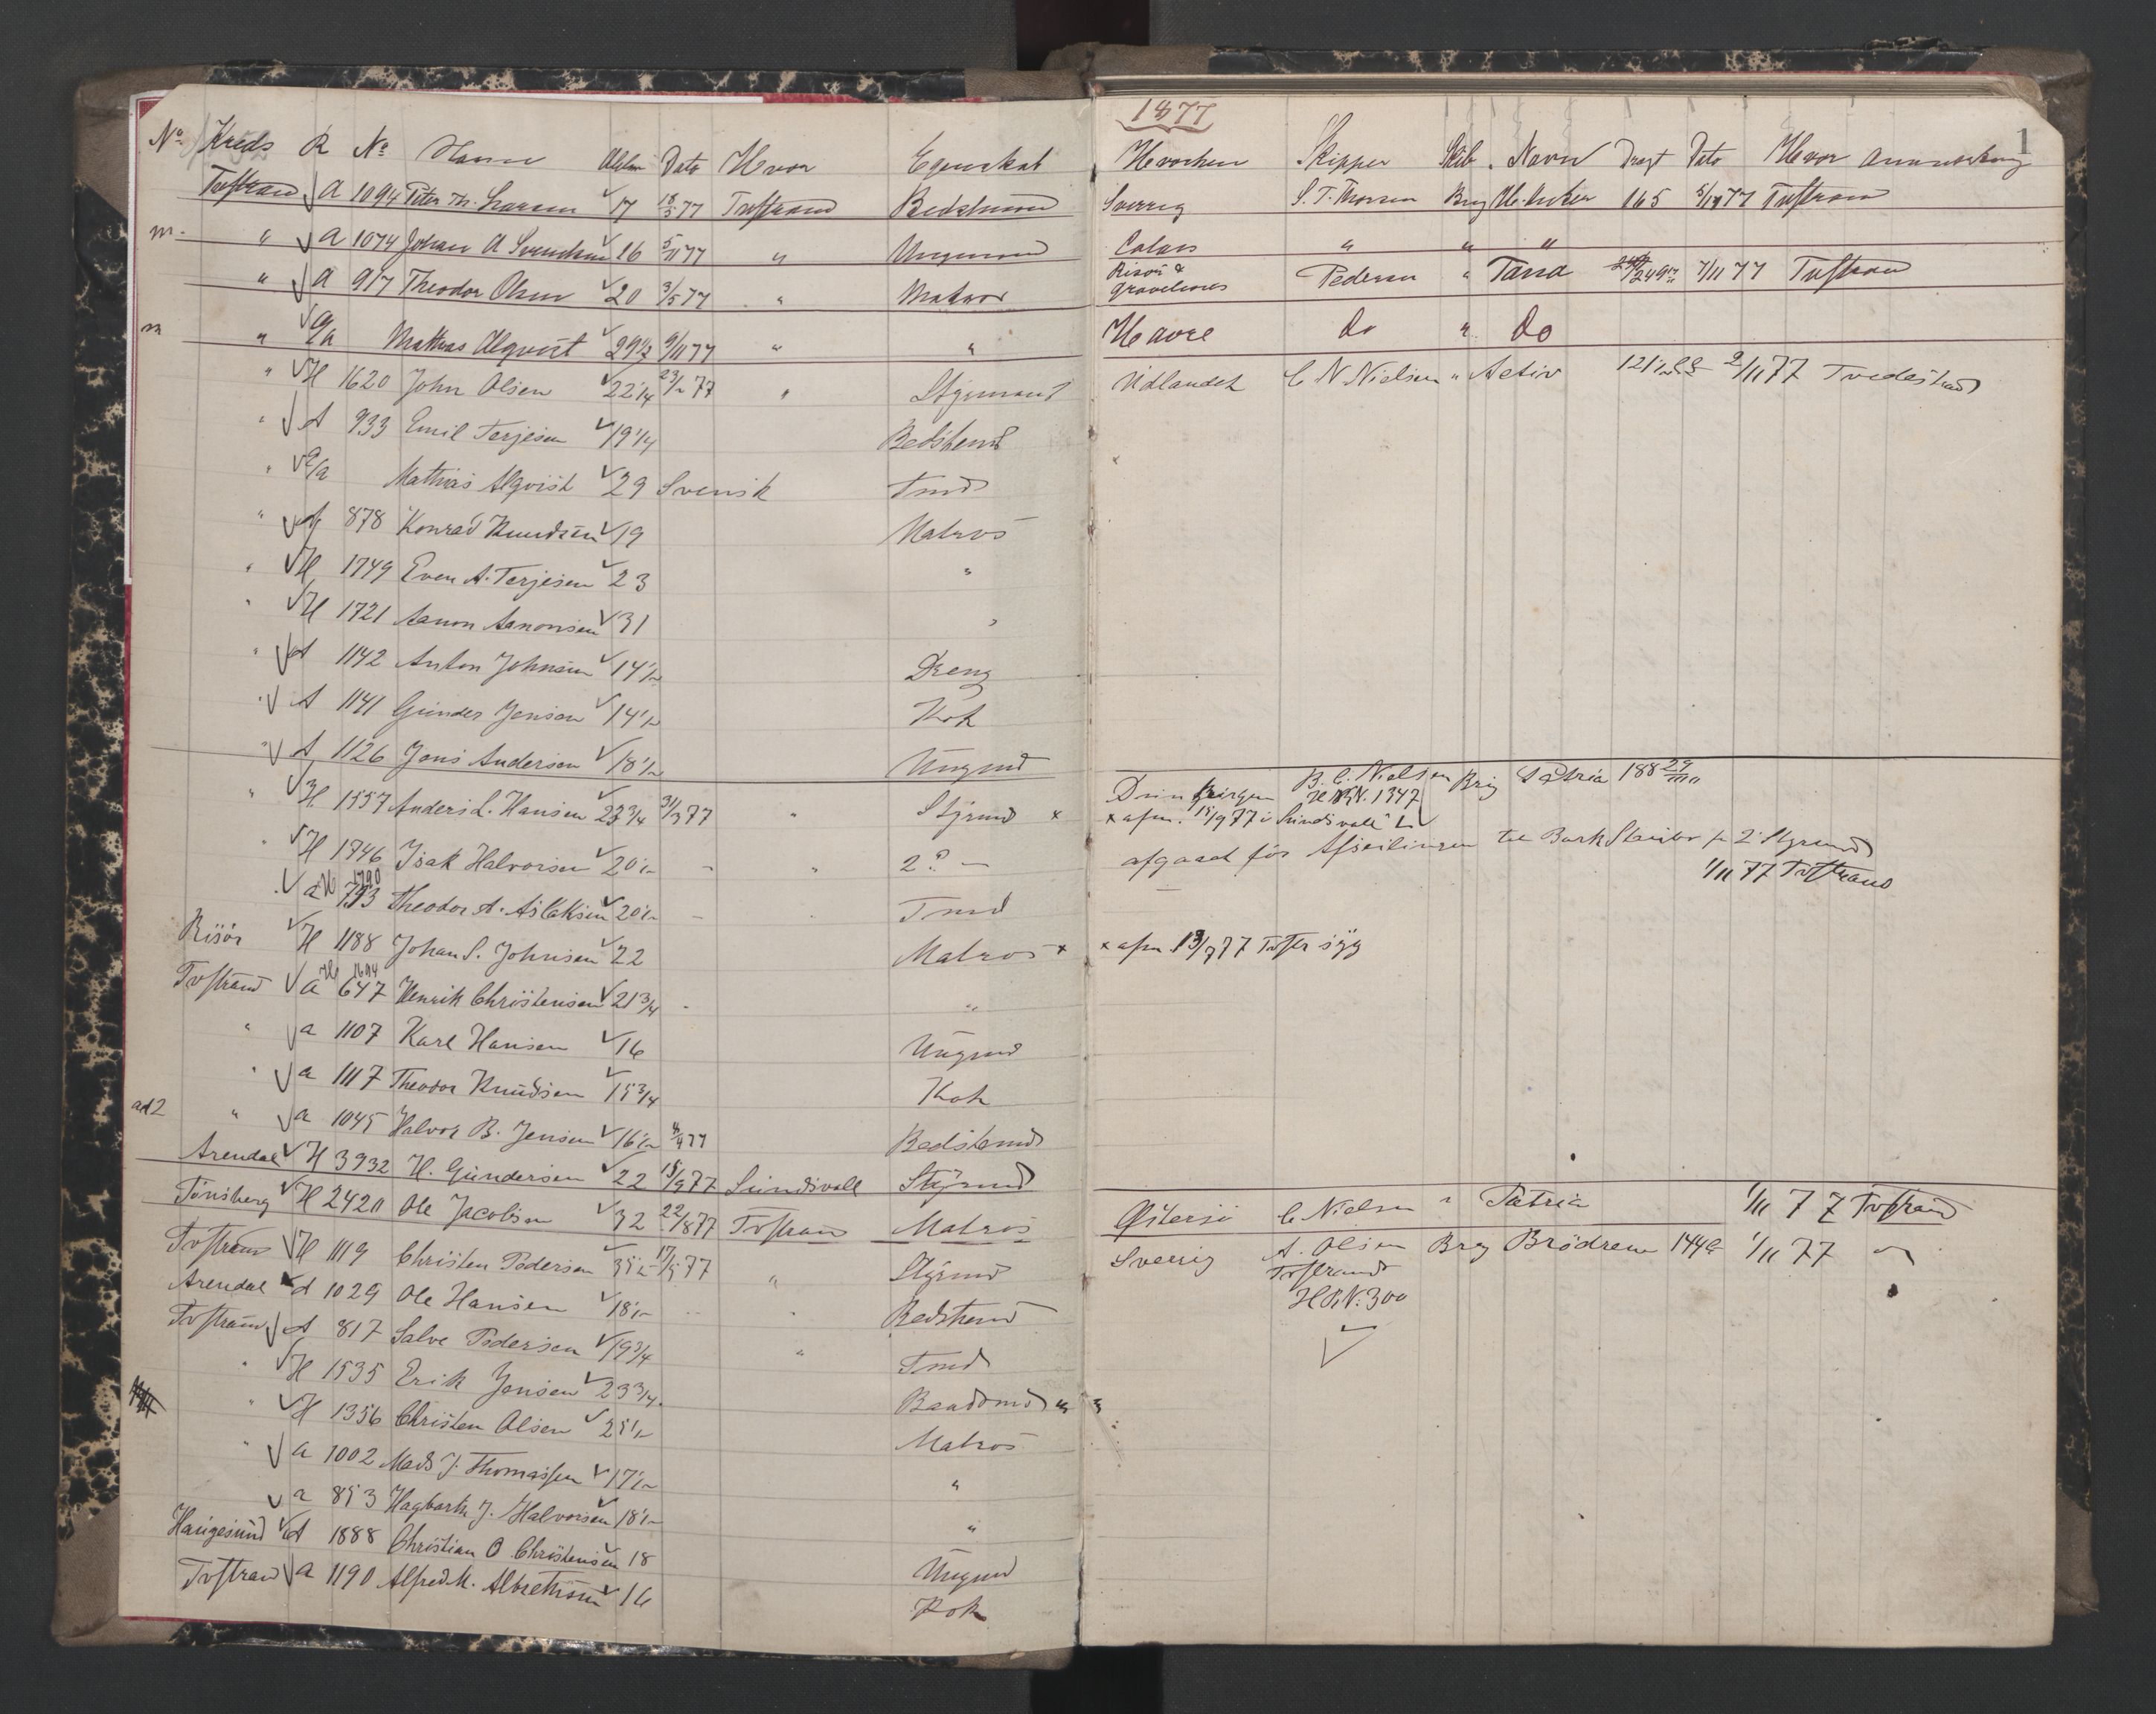 No Kreds R No Navn Alder Dato Hvor Egenskab
Tvstrand A 1094 Peter Th. Larsen 17 77 Tvstrand Bedstmand
m. " A 1074 Johan A Svendsen 16 5/11 77 " Ungmand
" A 917 Theodor Olsen 20 3/5 77 " Matros
m " Mathias Alqvist 29 1/2 9/11 77 " "
" H 1620 John Olsen 22 1/4 77 " Styrmand
" A 933 Emil Terjesen 19 1/4 Bedstemd
" Mathias Alqvist 29 Svensk Tmd
" A 878 Konrad Knudsen 19 Matros
" H 1749 Even A. Terjesen 23 "
" H 1721 Aanon Aanonsen 31 "
" A 1142 Anton Johnsen 14 1/2 Dreng
" A 1141 Gunder Jensen 14 1/2 Kok
" A 1126 Jens Andersen 18 1/2 Ungmd
" H 1557 Anders L. Hansen 23 3/4 31/3 77 " Styrmd x
" H 1746 Isak Halvorsen 20 1/2 - " 2? —
" a 793 H 1790 Theodor A. Aslaksen 20 1/2 - " Tmd
Risör H 1188 Johan S. Johnsen 22 Matros x
Tvstrand a 647 H 1694 Henrik Christensen 21 3/4 - "
" a 1107 Karl Hansen 16 Ungmd
" a 1117 Theodor Knudsen 15 3/4 Kok
ad 2 " a 1045 Halvor B. Jensen 16 1/2 77 Bedstemd
Arendal H 3932 H. Gundersen 22 15/9 77 Sundsvall Styrmd
Tönsberg H 2420 Ole Jacobsen 32 22/8 77 Tvstrand Matros
Tvstrand H 1119 Christen Pedersen 77 " Styrmd
Arendal A 1029 Ole Hansen 18 1/2 " Bedstemd
Tvstrand A 817 Salve Pedersen 19 3/4 " Tmd
" H 1535 Erik Jensen 23 3/4 Baadsmd
" H 1356 Christen Olsen 25 1/2 Matros
" a 1002 Mads J. Thomassen 17 1/2 "
a 853 Hagbarth J. Halvorsen 18 1/2 "
Haugesund A 1888 Christian O Christensen 18 Ungmd
Tvstrand a 1190 Alfred M. Albretsen 16 Kok
1
1877
Hvorhen Skipper Skib. Navn Drægt Dato Hvor Anmærkning
Sverrig S. T. Thorsen Brig 165 77 Tvstrand
Calais " " "
Risör & Gravelines Pedersen " 249 7/11 77 Tvstrand
Havre do " do
Udlandet C N Nielsen " Activ 121 1/2 2/11 77 Tvedestrand
B. C. Nielsen Brig Patria 188
1347
x afm. 15/9 77 i Sundsvall
afgaaet för Afseilingen til Bark 2 Styrmd
1/11 77 Tvstrand
x afm 77 syg
Östersö C Nielsen " Patria 1/11 77 Tvstrand
Sverrig A. Olsen Brig Brödrene 144 1/11 77
Tvstrand
H R N: 300